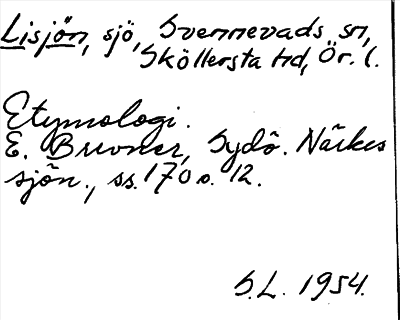 Lisjön, sjö, Svennevads sn,
Sköllersta hd, Ör. l.
Etymologi.
E. Bruner, Sydö. Närkes
sjön., ss. 170 o. 12.
S.L. 1954.